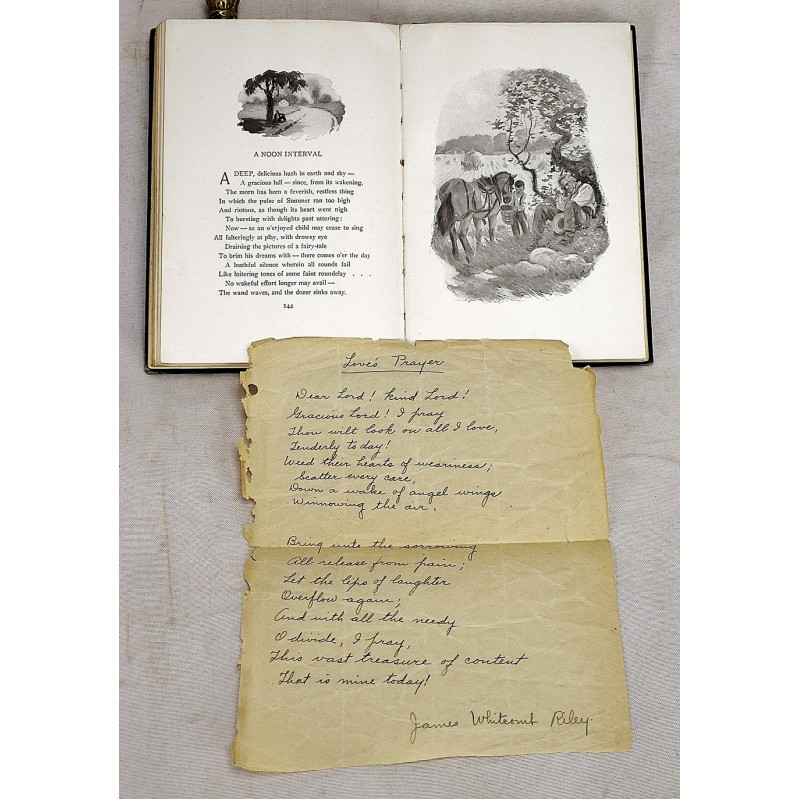 A NOON INTERVAL
A DEEP, delicious hush in earth and sky —
A gracious lull — since, from its wakening,
The morn has been a feverish, restless thing
In which the pulse of Summer ran too high
And riotous, as though its heart went nigh
To bursting with delights past uttering:
Now — as an o'erjoyed child may cease to sing
All falteringly at play, with drowsy eye
Draining the pictures of a fairy-tale
To brim his dreams with — there comes o'er the day
A loathful silence wherein all sounds fail
Like loitering tones of some faint roundelay . . .
No wakeful effort longer may avail —
The wand waves, and the dozer sinks away.
144
Love's Prayer
Dear Lord! Kind Lord!
Gracious Lord! I pray
Thou wilt look on all I love,
Tenderly to day!
Weed their hearts of weariness;
Scatter every care,
Down a wake of angel wings
Winnowing the air.
Bring unto the sorrowing
All release from pain;
Let the lips of laughter
Overflow again;
And with all the needy
O divide, I pray,
This vast treasure of content
That is mine today!
James Whitcomb Riley.